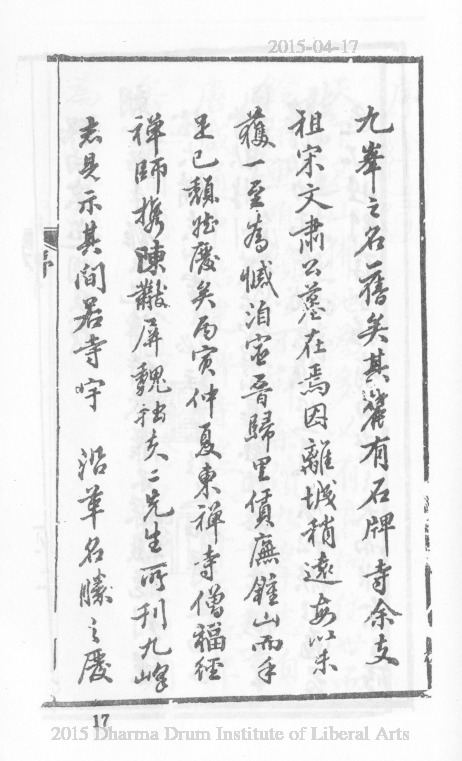 2015-04-17
九峯之名舊矣其麓有石牌寺余支
祖宋文肅公墓在焉因離城稍遠每以未
獲一至為憾洎宦晉歸里僨廡鍾山而手
足已頹於廢矣丙寅仲夏東禪寺僧福經
禪師携陳黻屏魏拙夫二先生所刊九峰
志見示其間若寺宇 沿革名勝之
序
17
2015 Dharma Drum Institute of Liberal Arts